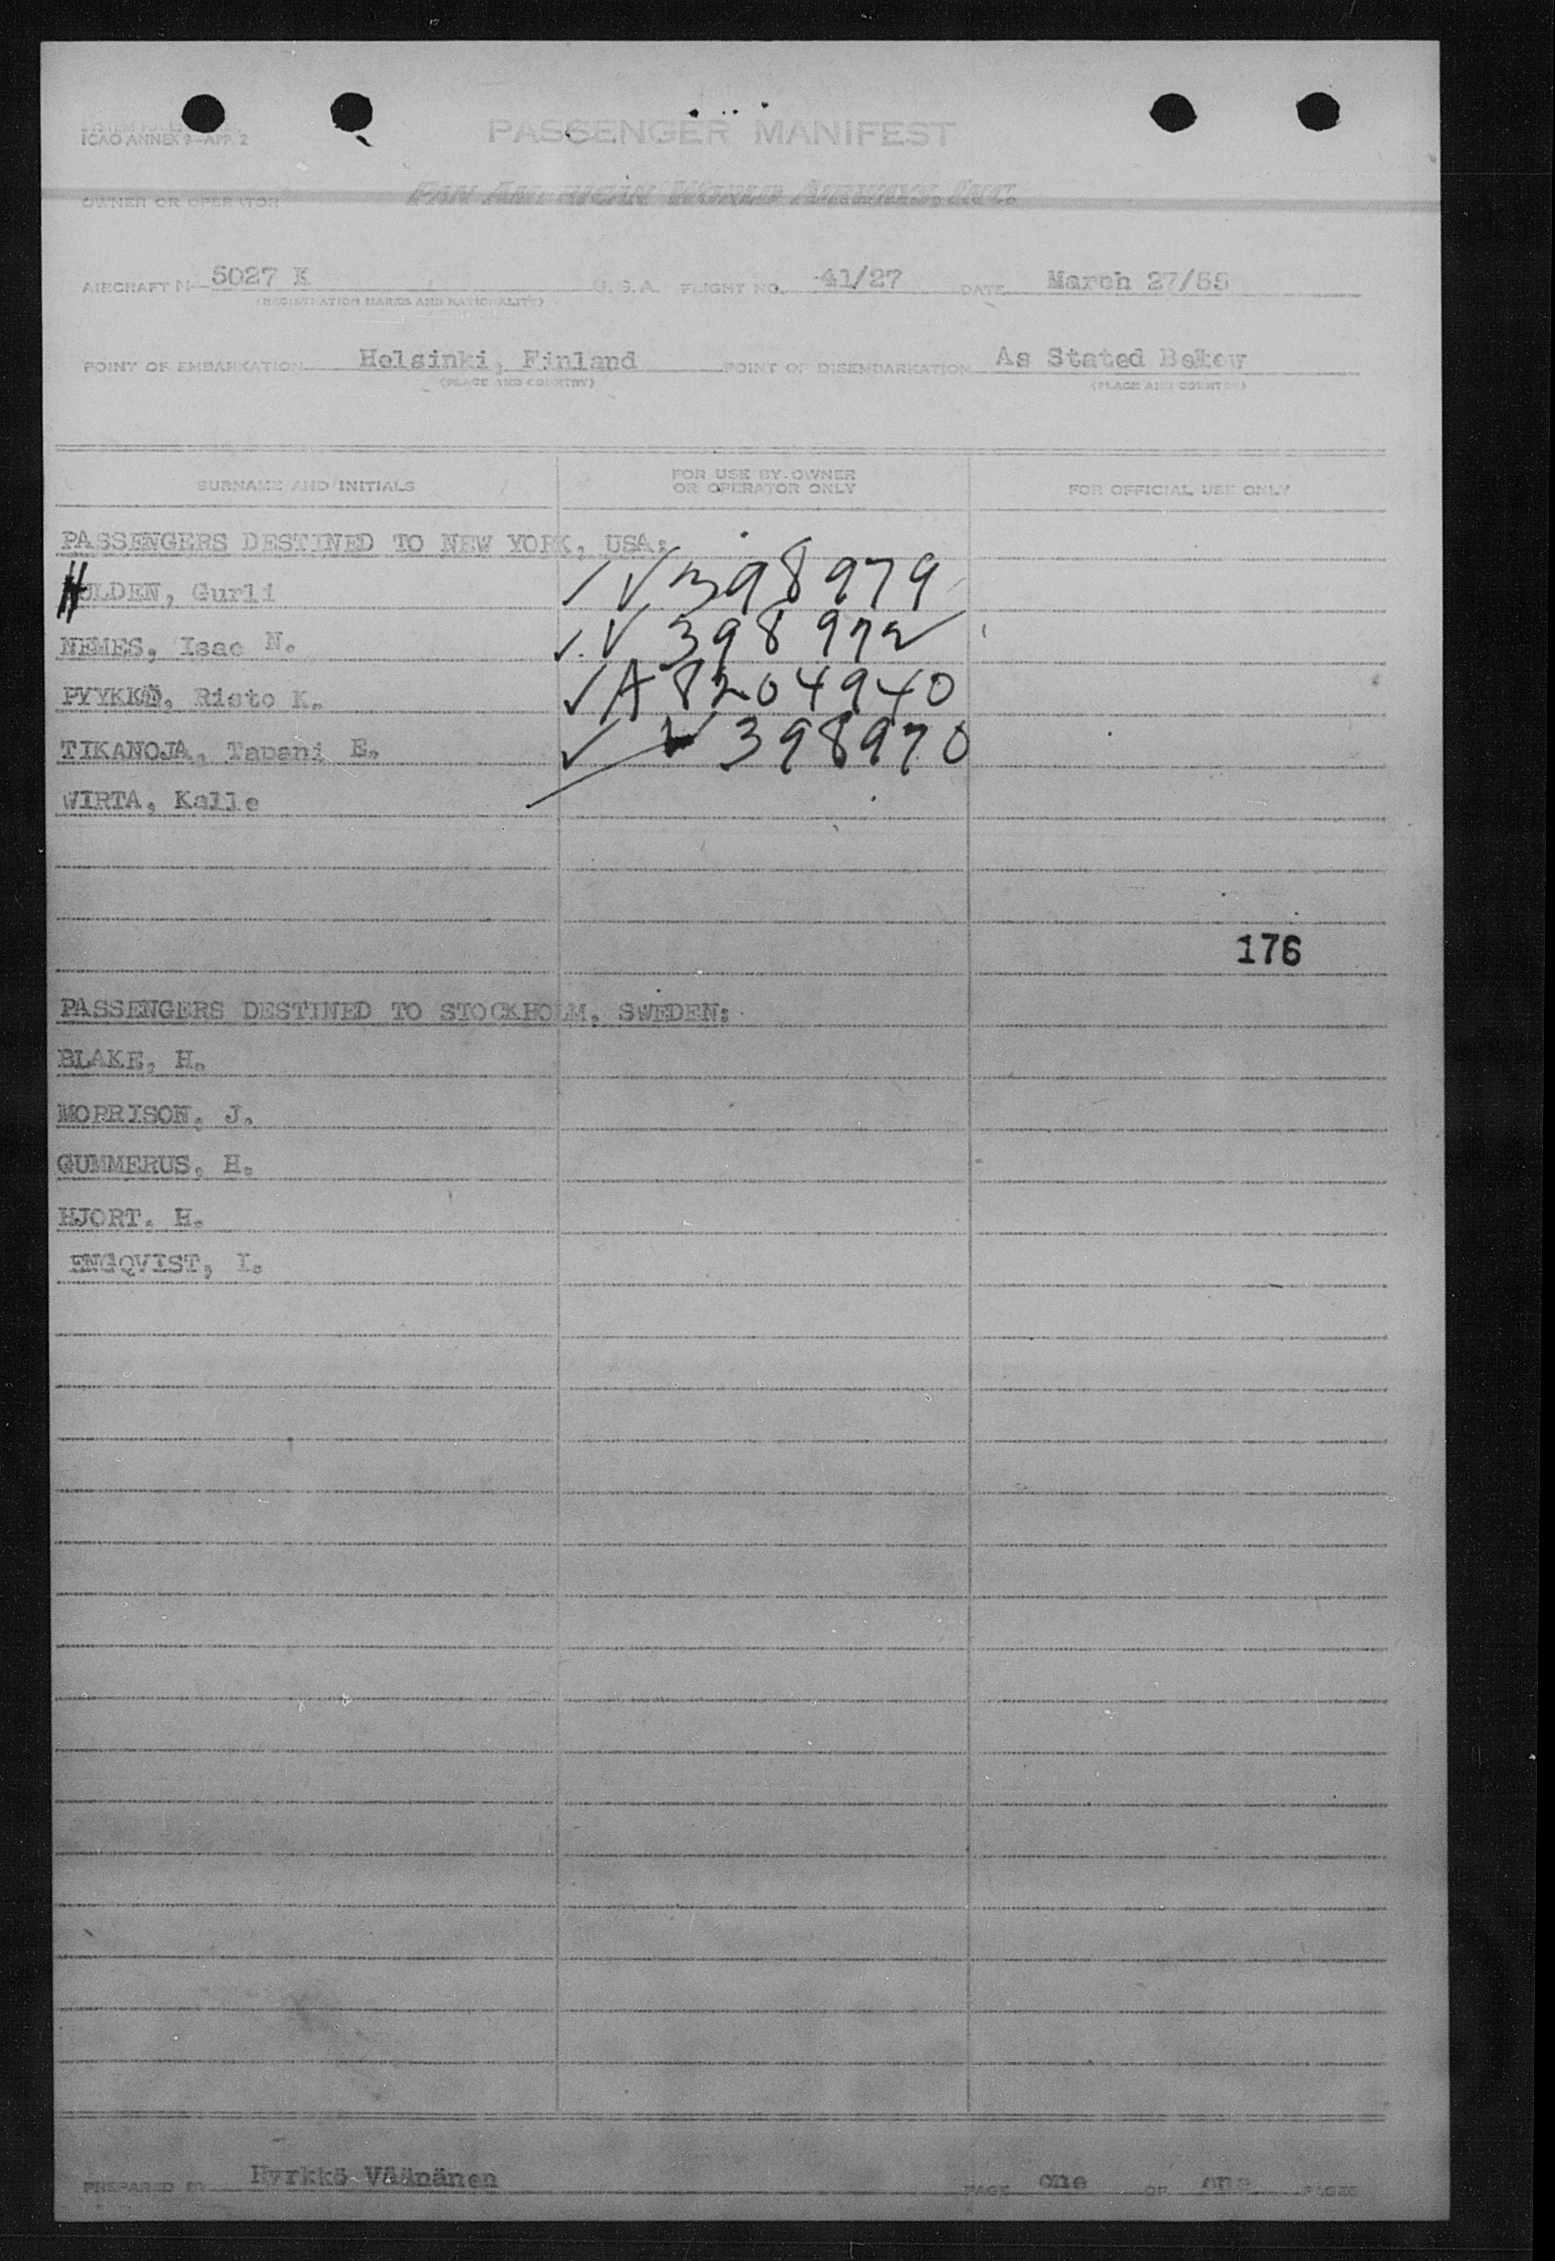 ICAO ANNEX 9—APP. 2
PASSENGER MANIFEST
OWNER OR OPERATOR PAN AMERICAN WORLD AIRWAYS, INC.
AIRCRAFT N- 5027 K U.S.A. FLIGHT NO. 41/27 DATE March 27/55
(REGISTRATION MARKS AND NATIONALITY)
POINT OF EMBARKATION Helsinki, Finland POINT OF DISEMBARKATION As Stated Below
(PLACE AND COUNTRY) (PLACE AND COUNTRY)
SURNAME AND INITIALS FOR USE BY OWNER OR OPERATOR ONLY FOR OFFICIAL USE ONLY
PASSENGERS DESTINED TO NEW YORK, USA:
HULDEN, Gurli ✓ V 398979
NEMES, Isac N. ✓ V 398972
PYYKKÖ, Risto K. ✓ A 8204940
TIKANOJA, Tapani E. ✓ V 398970
WIRTA, Kalle
176
PASSENGERS DESTINED TO STOCKHOLM, SWEDEN:
BLAKE, H.
MORRISON, J.
GUMMERUS, H.
HJORT, H.
ENGQVIST, I.
PREPARED BY Hyrkkö-Väänänen PAGE one OF one PAGES